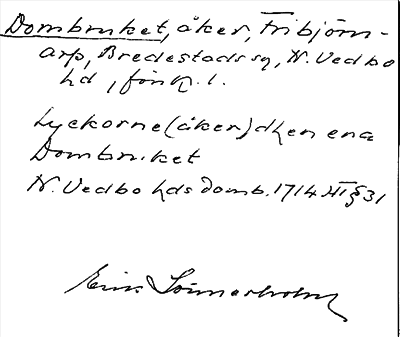 Dombruket, åker, Fribjörn-
arp, Bredestads sn, N. Vedbo
hd, Jönk. l.
Lyckorne (åker) d hen ena
Dombruket
N. Vedbo hds domb. 1714 HT § 31
Eric Sönnerholm